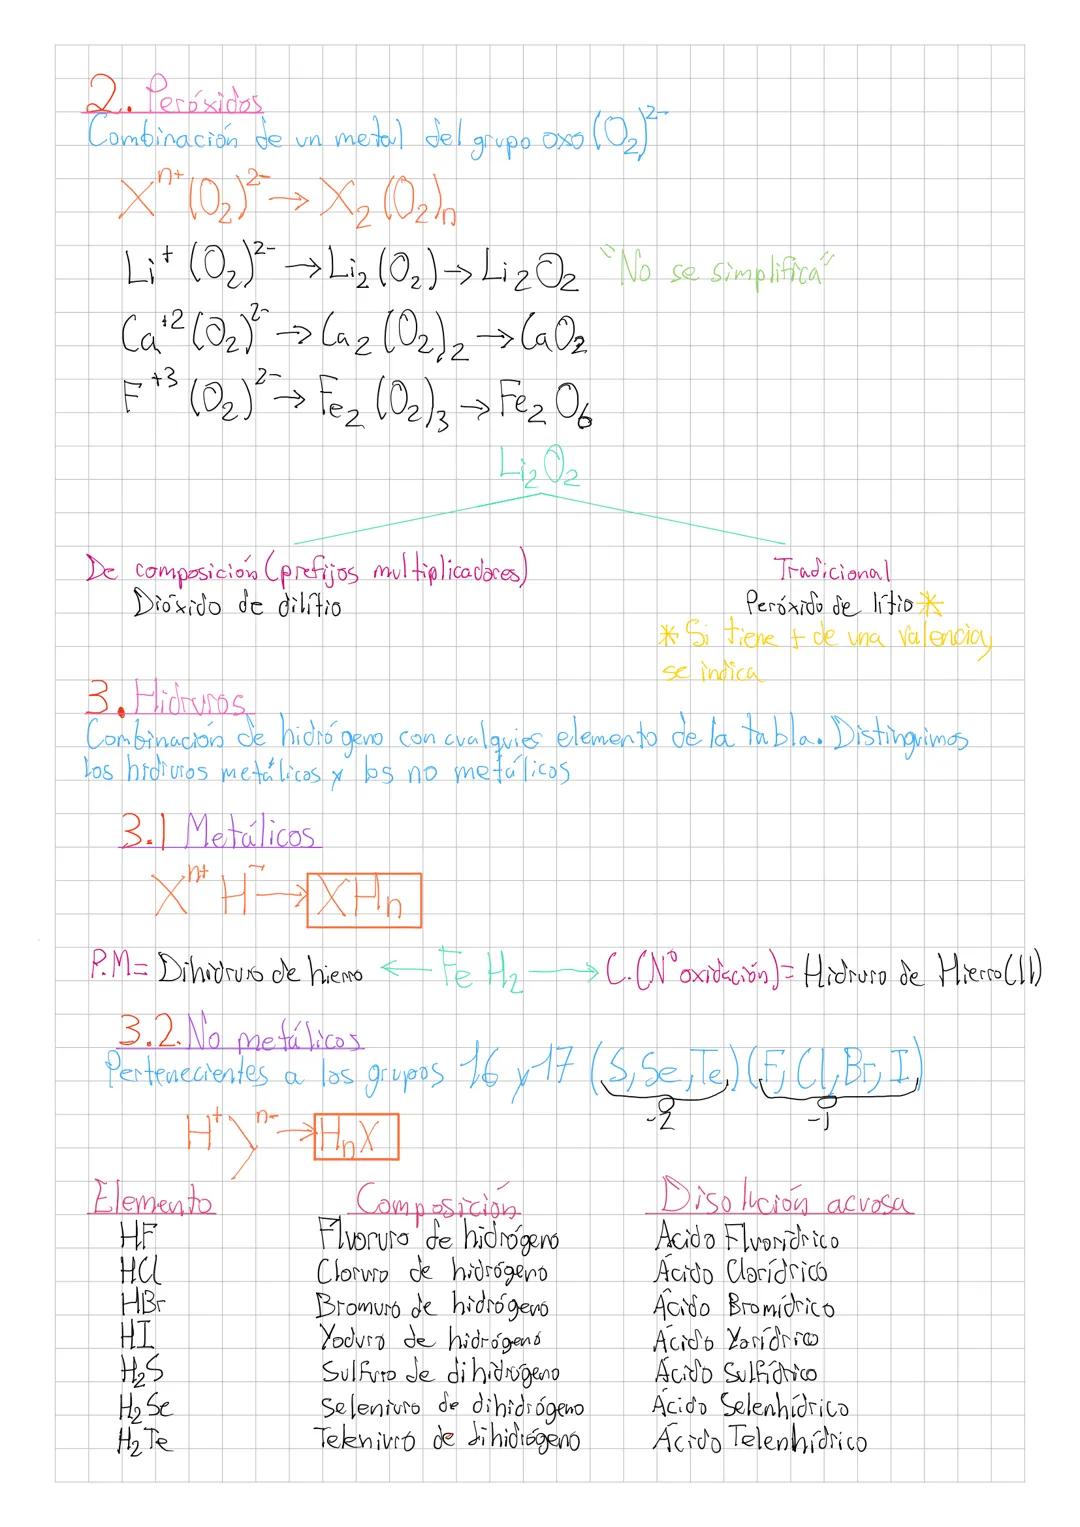 2. Peróxidos
Combinación de un metal del grupo oxo (O₂)²⁻
Xⁿ⁺ (O₂)²⁻ → X₂ (O₂)ₙ
Li⁺ (O₂)²⁻ → Li₂ (O₂) → Li₂O₂ "No se simplifica"
Ca⁺² (O₂)²⁻ → Ca₂ (O₂)₂ → CaO₂
F⁺³ (O₂)²⁻ → Fe₂ (O₂)₃ → Fe₂O₆
Li₂O₂
De composición (prefijos multiplicadores) Tradicional
Dióxido de dilitio Peróxido de litio *
* Si tiene + de una valencia,
se indica
3. Hidruros
Combinación de hidrógeno con cualquies elemento de la tabla. Distinguimos
los hidruros metálicos y los no metálicos
3.1 Metálicos
Xⁿ⁺ H⁻ → XHₙ
P.M= Dihidruro de hierro ← FeH₂ → C.(Nº oxidación)= Hidruro de Hierro(II)
3.2. No metálicos
Pertenecientes a los grupos 16 y 17 (S, Se, Te) (F, Cl, Br, I)
-2 -1
H⁺ Yⁿ⁻ → HₙX
Elemento Composición Disolución acuosa
HF Fluoruro de hidrógeno Ácido Fluorídrico
HCl Cloruro de hidrógeno Ácido Clorídrico
HBr Bromuro de hidrógeno Ácido Bromídrico
HI Yoduro de hidrógeno Ácido
H₂S Sulfuro de dihidrógeno Ácido Sulfídrico
H₂Se Seleniuro de dihidrógeno Ácido Selenhídrico
H₂Te Teleniuro de dihidrógeno Ácido Telenhídrico